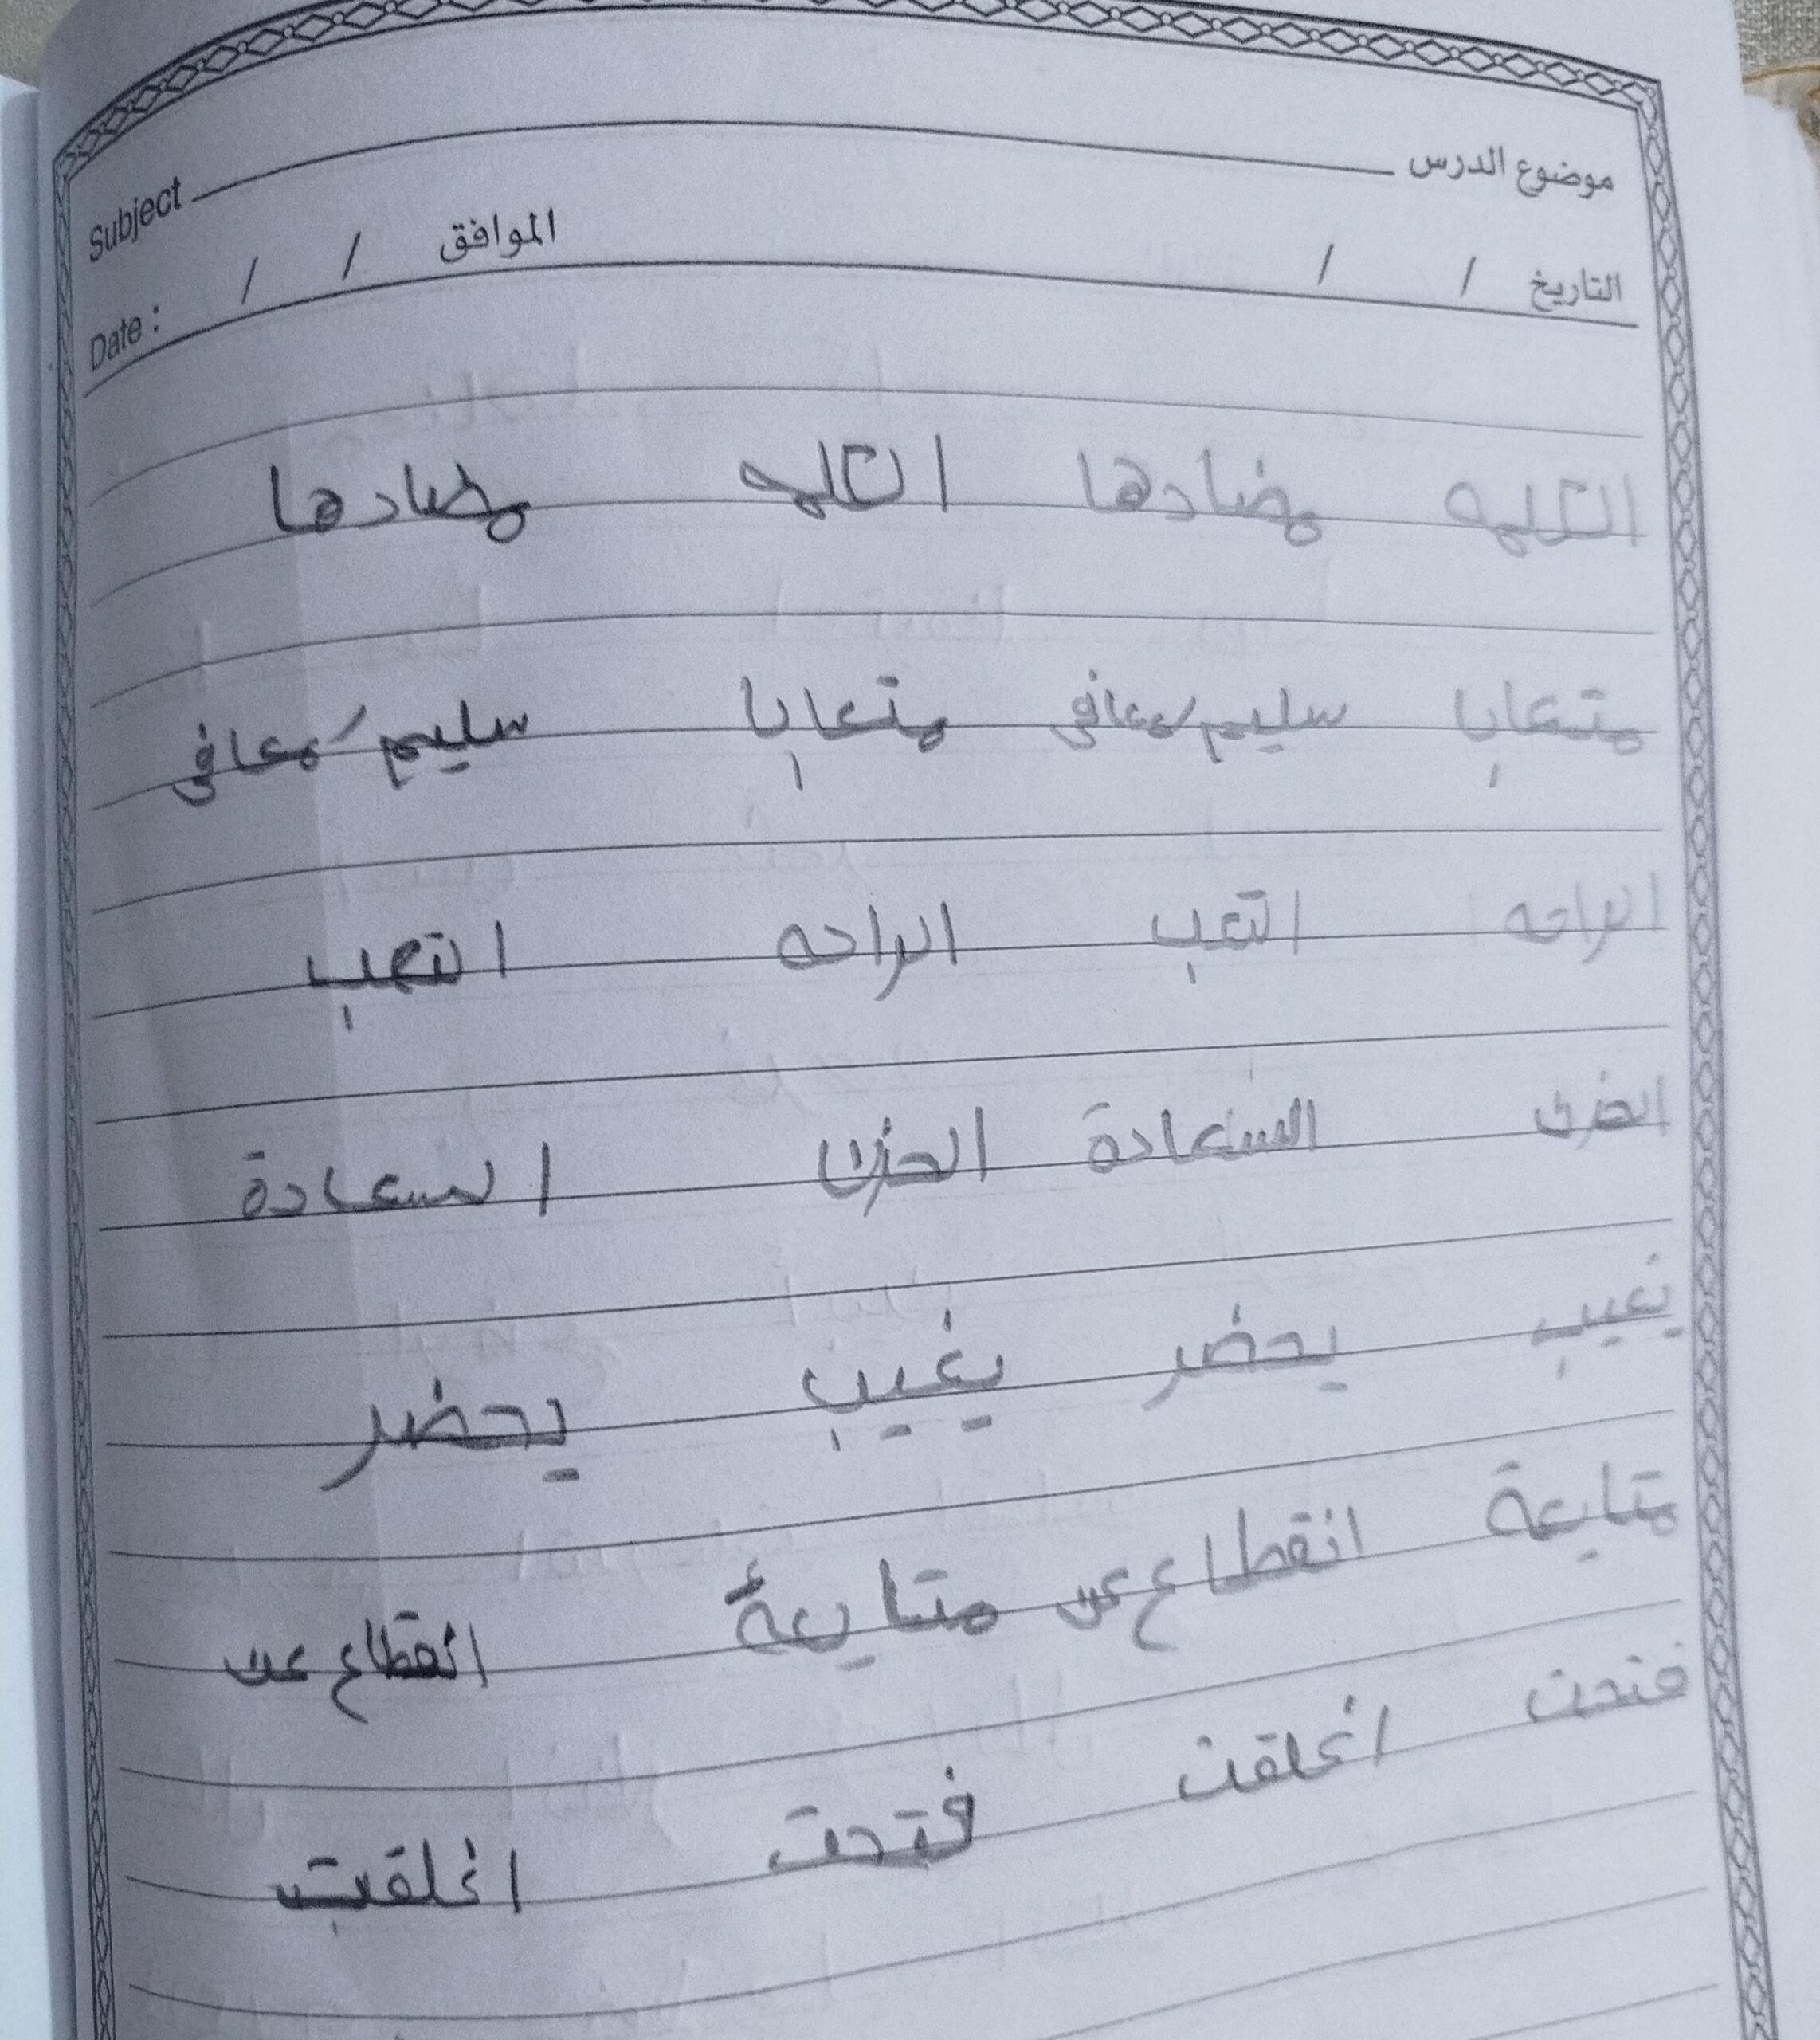 موضوع الدرس Subject
التاريخ / / الموافق / / Date :
الكلمه مضادها الكلمه مضادها
متعابا سليم/معافى متعابا سليم/معافى
الراحه التعب الراحه التعب
الحزن السعادة الحزن السعادة
يغيب يحضر يغيب يحضر
متابعة انقطاع عن متابعة انقطاع عن
فتحت اغلقت فتحت اغلقت